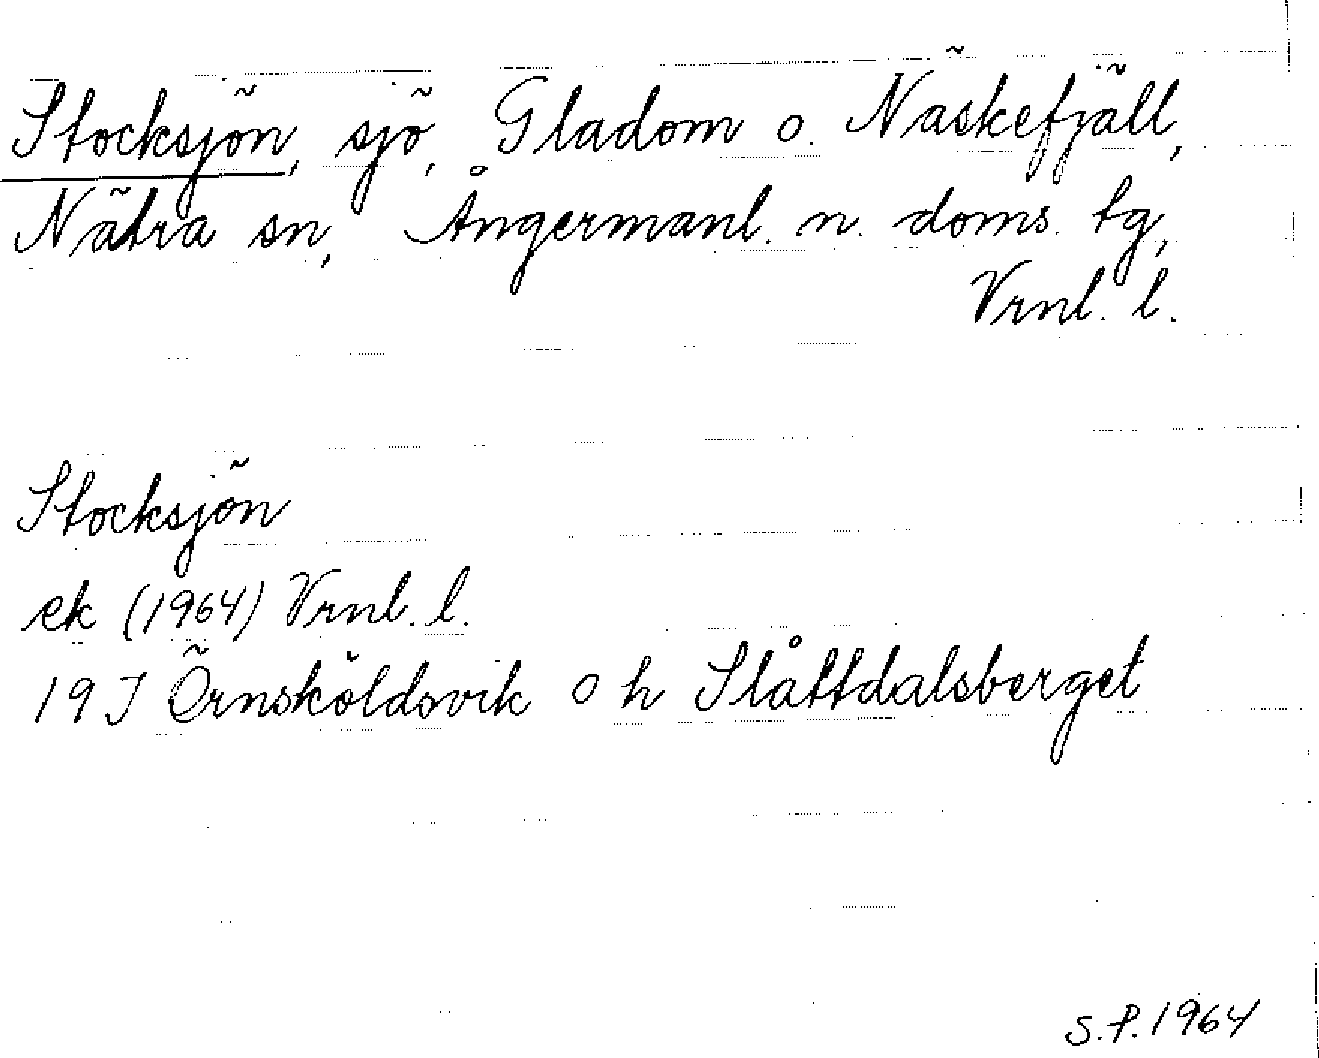 Stocksjön, sjö, Gladom o. Näskefjäll,
Nätra sn, Ångermanl. n. doms. tg,
Vrnl. l.
Stocksjön
ek (1964) Vrnl. l.
19J Örnsköldsvik o h Slåttdalsberget
S.P. 1964